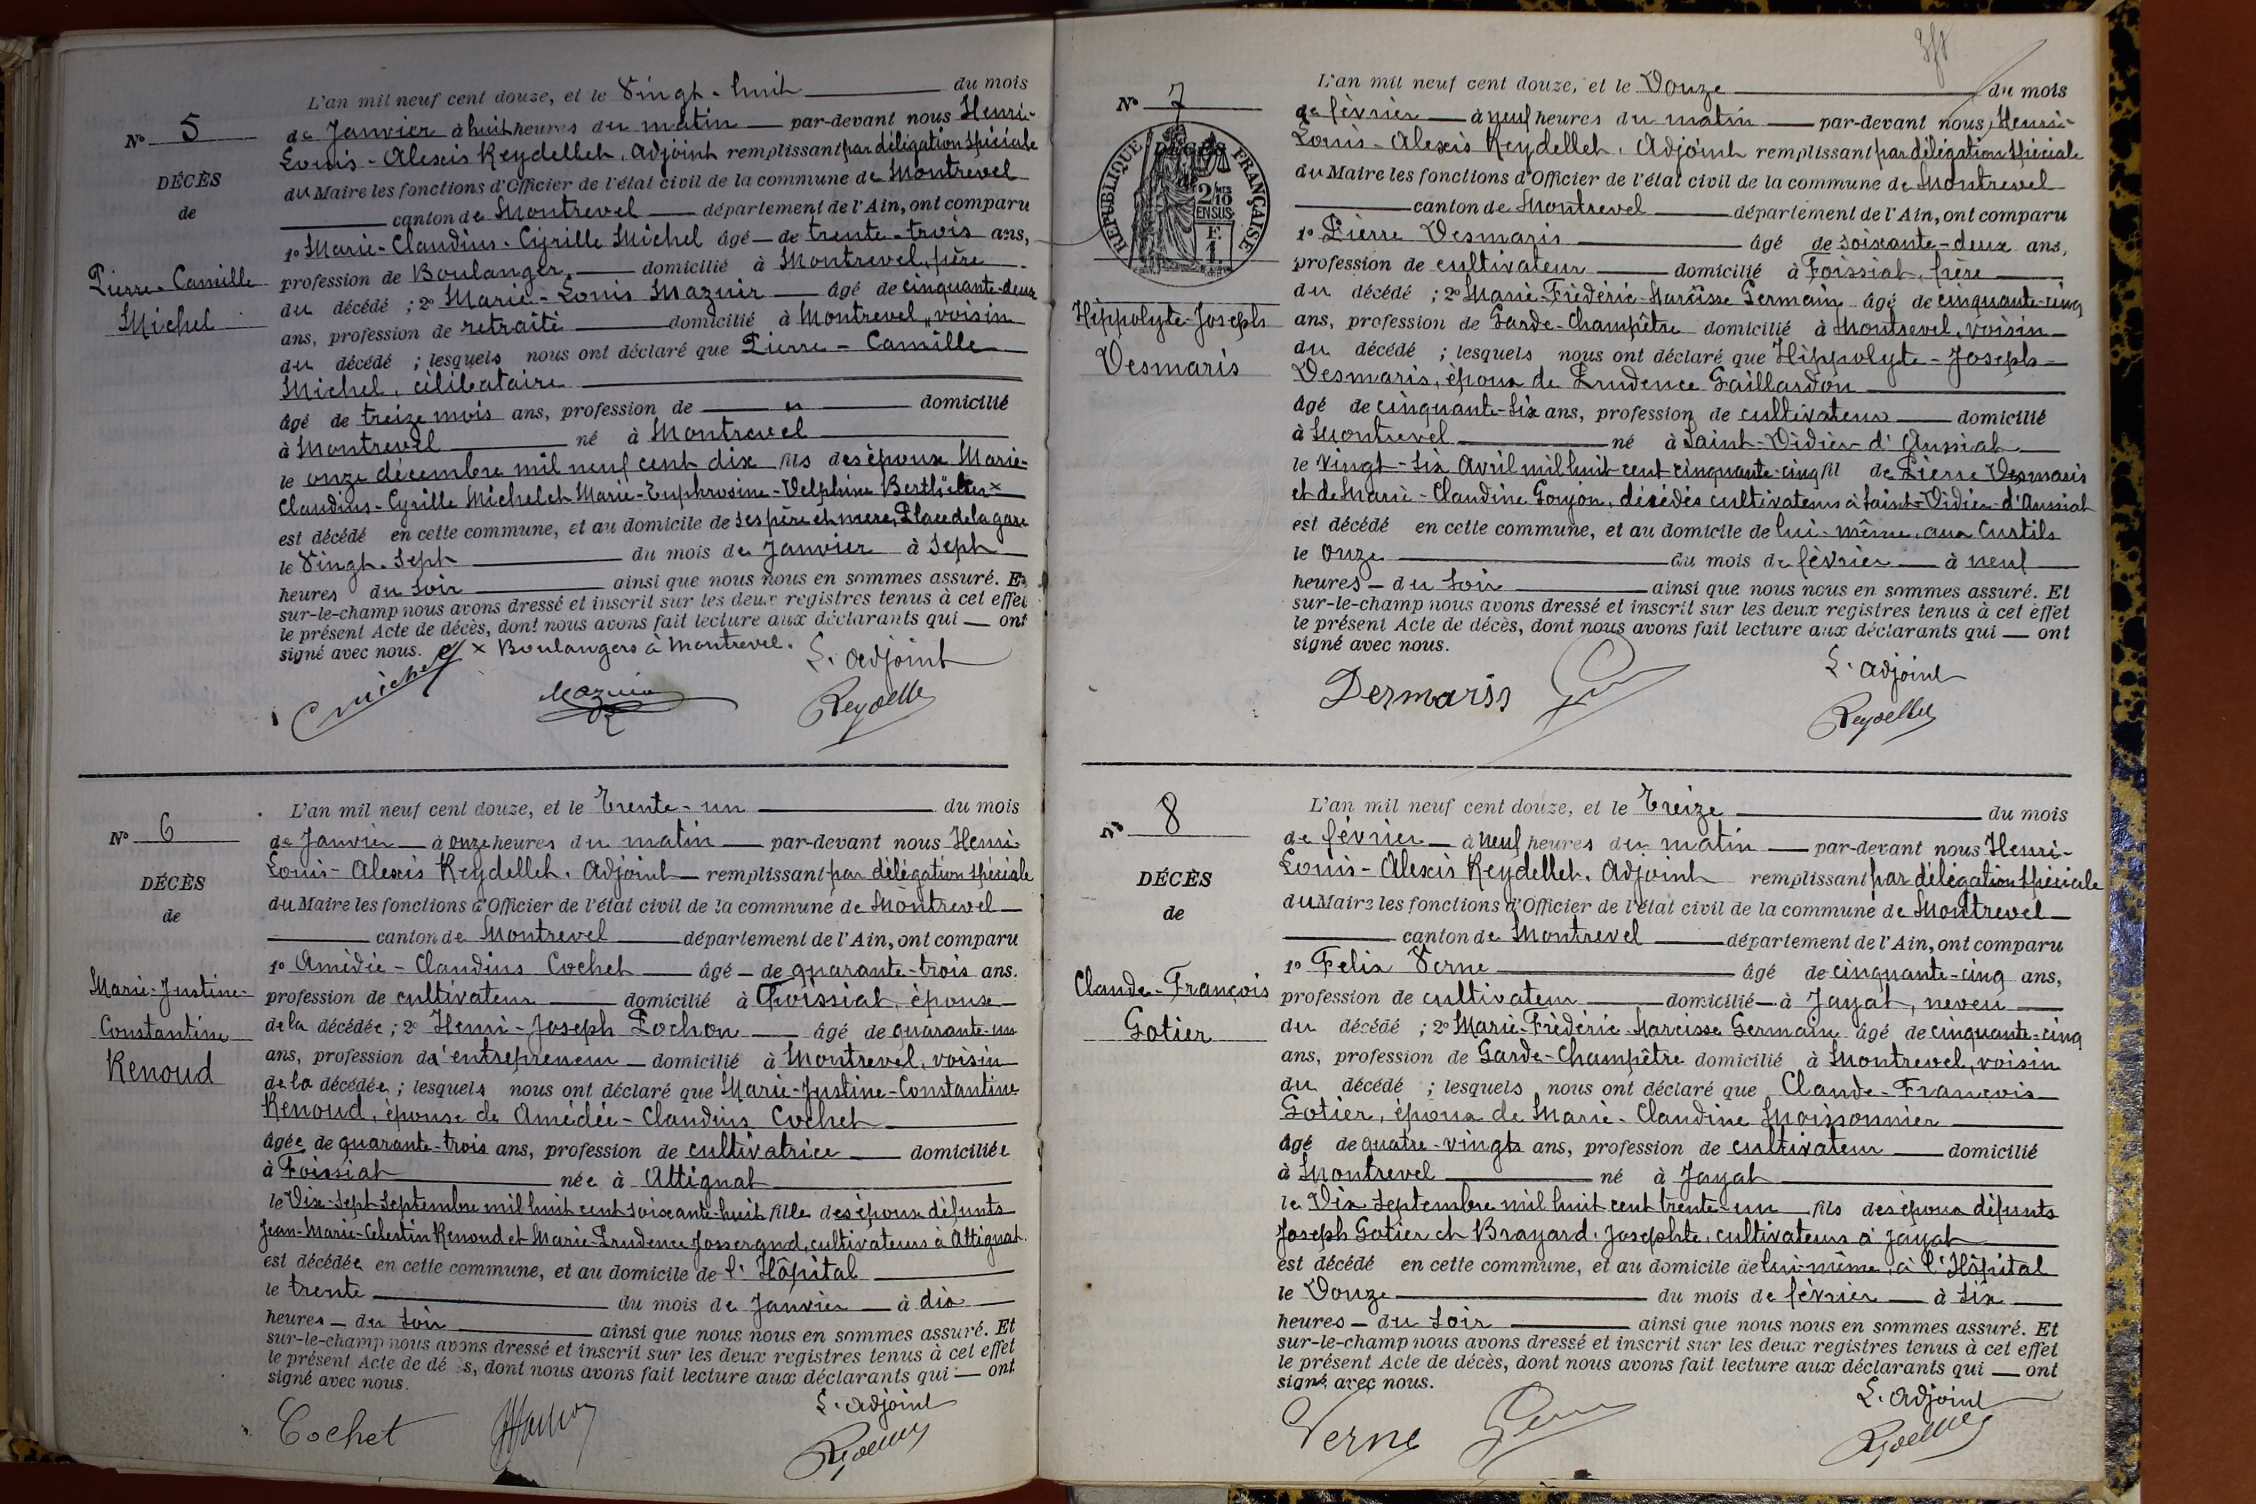 N° 5
DÉCÈS
de
Pierre-Camille
Michel
L'an mil neuf cent douze, et le Vingt-huit du mois
de Janvier à huit heures du matin par-devant nous Henri-
Louis-Alexis Reydellet, Adjoint remplissant par délégation spéciale
du Maire les fonctions d'Officier de l'état civil de la commune de Montrevel
canton de Montrevel département de l'Ain, ont comparu
1° Marie-Claudius-Cyrille Michel âgé de trente-trois ans,
profession de Boulanger, domicilié à Montrevel, père
du décédé ; 2° Marie-Louis Mazuir âgé de cinquante-deux
ans, profession de retraité domicilié à Montrevel, voisin
du décédé ; lesquels nous ont déclaré que Pierre-Camille
Michel, célibataire
âgé de treize mois ans, profession de " domicilié
à Montrevel né à Montrevel
le onze décembre mil neuf cent dix fils des époux Marie-
Claudius-Cyrille Michel et Marie-Euphrosine-Delphine ×
est décédé en cette commune, et au domicile de ses père et mère, Place de la gare
le Vingt-Sept du mois de Janvier à Sept
heures du soir ainsi que nous nous en sommes assuré. Et
sur-le-champ nous avons dressé et inscrit sur les deux registres tenus à cet effet
le présent Acte de décès, dont nous avons fait lecture aux déclarants qui ont
signé avec nous. × Boulangers à Montrevel.
L'adjoint
Michel Mazuir Reydellet
N° 6
DÉCÈS
de
Marie-Justine-
Constantine
Renoud
L'an mil neuf cent douze, et le Trente-un du mois
de Janvier à onze heures du matin par-devant nous Henri-
Louis-Alexis Reydellet, Adjoint remplissant par délégation spéciale
du Maire les fonctions d'Officier de l'état civil de la commune de Montrevel
canton de Montrevel département de l'Ain, ont comparu
1° Amédée-Claudius Cochet âgé de quarante-trois ans.
profession de cultivateur domicilié à Foissiat, époux
de la décédée ; 2° Henri-Joseph Pochon âgé de quarante-un
ans, profession d'entrepreneur domicilié à Montrevel, voisin
de la décédée ; lesquels nous ont déclaré que Marie-Justine-Constantine
Renoud, épouse de Amédée-Claudius Cochet
âgée de quarante-trois ans, profession de cultivatrice domiciliée
à Foissiat née à Attignat
le Dix-Sept Septembre mil huit cent soixante-huit fille des époux défunts
Jean-Marie-Célestin Renoud et Marie-Prudence Josserand, cultivateurs à Attignat.
est décédée en cette commune, et au domicile de l'Hôpital
le trente du mois de Janvier à dix
heures du soir ainsi que nous nous en sommes assuré. Et
sur-le-champ nous avons dressé et inscrit sur les deux registres tenus à cet effet
le présent Acte de dé s, dont nous avons fait lecture aux déclarants qui ont
signé avec nous.
L'adjoint
Cochet Reydellet
N° 7
RÉPUBLIQUE FRANÇAISE
2/10
EN SUS
Hippolyte-Joseph
Desmaris
L'an mil neuf cent douze, et le Douze du mois
de février à neuf heures du matin par-devant nous, Henri-
Louis-Alexis Reydellet, Adjoint remplissant par délégation spéciale
du Maire les fonctions d'Officier de l'état civil de la commune de Montrevel
canton de Montrevel département de l'Ain, ont comparu
1° Pierre Desmaris âgé de soixante-deux ans,
profession de cultivateur domicilié à Foissiat, frère
du décédé ; 2° Marie-Frédéric-Narcisse Germain âgé de cinquante-cinq
ans, profession de Garde-Champêtre domicilié à Montrevel, voisin
du décédé ; lesquels nous ont déclaré que Hippolyte-Joseph
Desmaris, époux de Prudence Gaillardon
âgé de cinquante-six ans, profession de cultivateur domicilié
à Montrevel né à Saint-Didier d'Aussiat
le vingt-six Avril mil huit cent cinquante-cinq fil de Pierre Desmaris
et de Marie-Claudine Goujon, décédés cultivateurs à Saint-Didier-d'Aussiat
est décédé en cette commune, et au domicile de lui-même, aux Curtils
le onze du mois de février à neuf
heures du soir ainsi que nous nous en sommes assuré. Et
sur-le-champ nous avons dressé et inscrit sur les deux registres tenus à cet effet
le présent Acte de décès, dont nous avons fait lecture aux déclarants qui ont
signé avec nous.
L'adjoint
Desmaris Reydellet
N° 8
DÉCÈS
de
Claude-François
Gotier
L'an mil neuf cent douze, et le Treize du mois
de février à neuf heures du matin par-devant nous Henri-
Louis-Alexis Reydellet, Adjoint remplissant par délégation spéciale
du Maire les fonctions d'Officier de l'état civil de la commune de Montrevel
canton de Montrevel département de l'Ain, ont comparu
1° Felix Verne âgé de cinquante-cinq ans,
profession de cultivateur domicilié à Jayat, neveu
du décédé ; 2° Marie-Frédéric-Narcisse Germain âgé de cinquante-cinq
ans, profession de Garde-Champêtre domicilié à Montrevel, voisin
du décédé ; lesquels nous ont déclaré que Claude-François
Gotier, époux de Marie-Claudine Moissonnier
âgé de quatre-vingts ans, profession de cultivateur domicilié
à Montrevel né à Jayat
le Dix Septembre mil huit cent trente-un fils des époux défunts
Joseph Gotier et Brayard Josephte, cultivateurs à Jayat
est décédé en cette commune, et au domicile de lui-même, à l'Hôpital
le Douze du mois de février à six
heures du soir ainsi que nous nous en sommes assuré. Et
sur-le-champ nous avons dressé et inscrit sur les deux registres tenus à cet effet
le présent Acte de décès, dont nous avons fait lecture aux déclarants qui ont
signé avec nous.
L'adjoint
Verne Reydellet